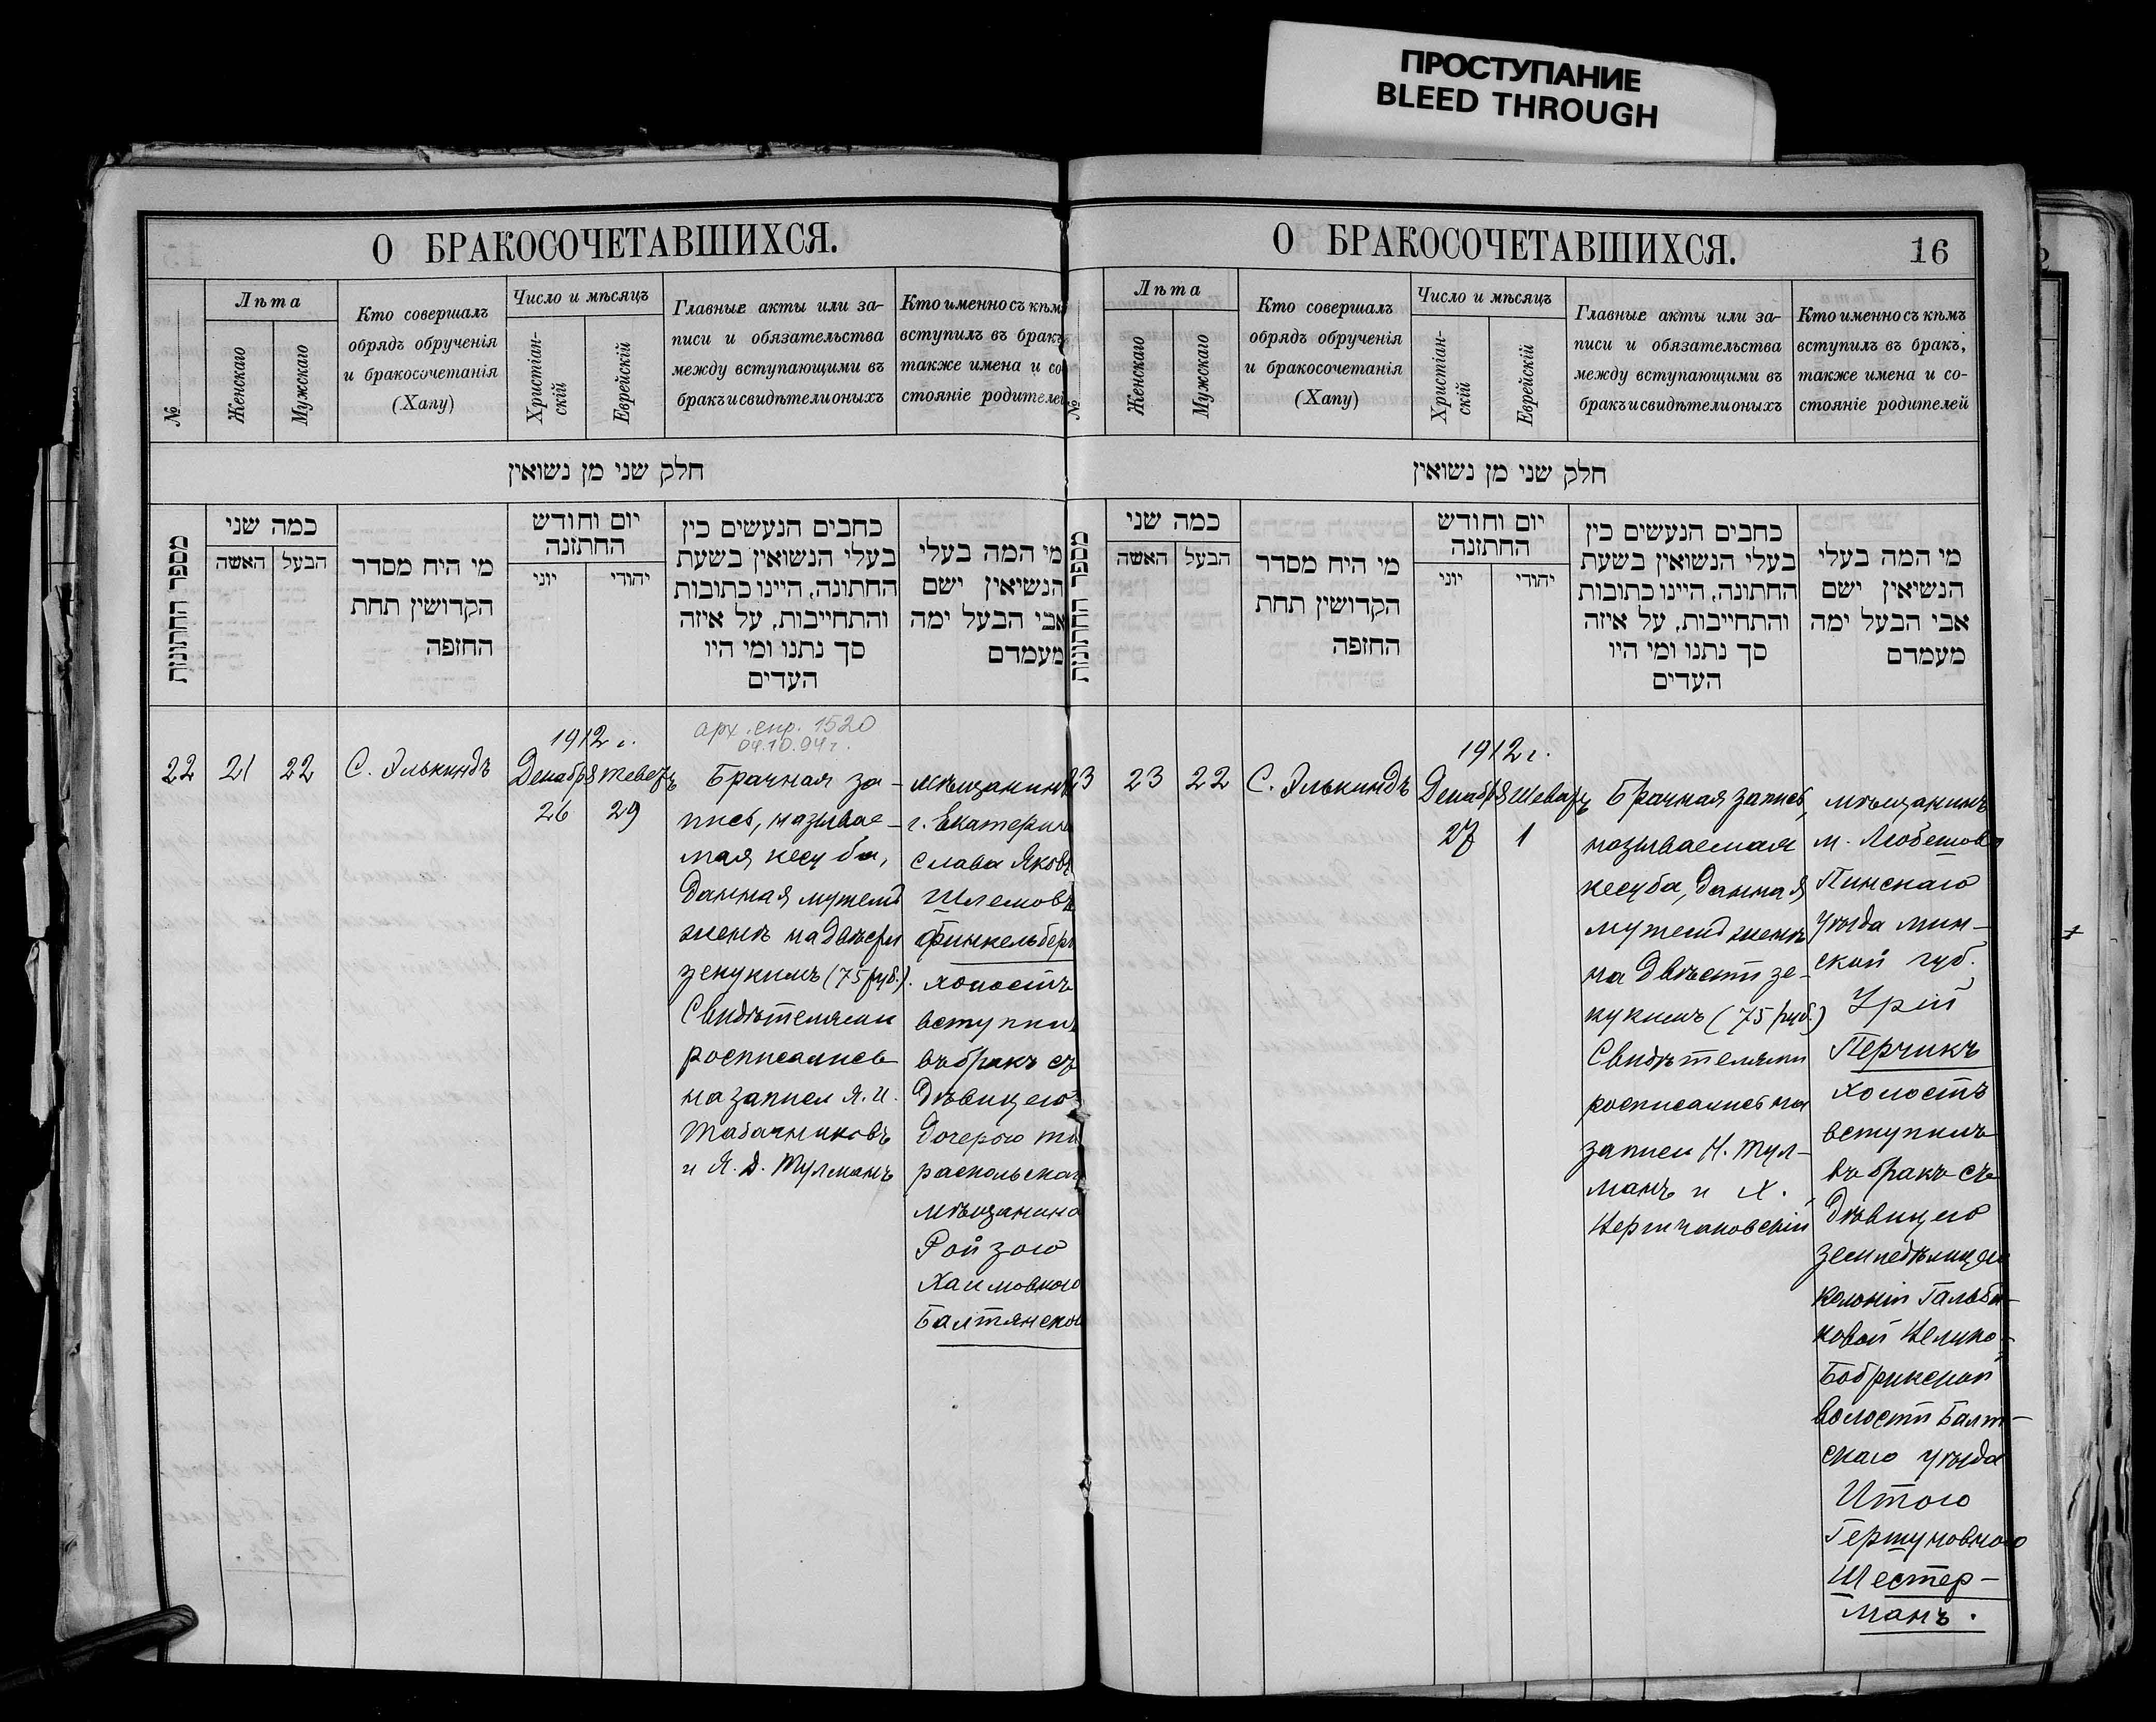 ПРОСТУПАНИЕ
BLEED THROUGH
О БРАКОСОЧЕТАВШИХСЯ.
№
Лѣта
Женскаго
Мужскаго
Кто совершалъ
обрядъ обрученія
и бракосочетанія
(Хапу)
Число и мѣсяцъ
Христіан-
скій
Еврейскій
Главные акты или за-
писи и обязательства
между вступающими въ
бракъ и свидѣтели оныхъ
Кто именно съ кѣмъ
вступилъ въ бракъ
также имена и со
стояніе родителей
חלק שני מן נשואין
מספר החתונות
כמה שני
האשה
הבעל
מי היח מסדר
הקדושין תחת
החזפה
יום וחודש
החתזנה
יוני
יהודי
כחבים הנעשים כין
בעלי הנשואין בשעת
החתונה, היינו כתובות
והתחייבות, על איזה
סך נתנו ומי היו
העדים
מי המה בעלי
הנשיאין ישם
אבי הבעל ימה
מעמדם
22
21
22
С. Элькиндъ
1912 г.
Декабря Теветъ
26
29
арх. спр. 1520
04.10.94г.
Брачная за-
пись, называе-
мая кесуба,
данная мужемъ
женѣ на двѣсти
зекукимъ (75 руб.).
Свидѣтелями
росписались
на записи Я. И.
Табачниковъ
и Я. Д. Тулманъ
мѣщанинъ
г. Екатерино
слава Яковъ
Шлемовъ
Финкельберг
холостъ
вступил
въ бракъ съ
дѣвицею
дочерью ти
распольскаг
мѣщанина
Ройзою
Хаимовною
Балтянскою
О БРАКОСОЧЕТАВШИХСЯ.
16
№
Лѣта
Женскаго
Мужскаго
Кто совершалъ
обрядъ обрученія
и бракосочетанія
(Хапу)
Число и мѣсяцъ
Христіан-
скій
Еврейскій
Главные акты или за-
писи и обязательства
между вступающими въ
бракъ и свидѣтели оныхъ
Кто именно съ кѣмъ
вступилъ въ бракъ,
также имена и со-
стояніе родителей
חלק שני מן נשואין
מספר החתונות
כמה שני
האשה
הבעל
מי היח מסדר
הקדושין תחת
החזפה
יום וחודש
החתזנה
יוני
יהודי
כחבים הנעשים כין
בעלי הנשואין בשעת
החתונה, היינו כתובות
והתחייבות, על איזה
סך נתנו ומי היו
העדים
מי המה בעלי
הנשיאין ישם
אבי הבעל ימה
מעמדם
23
23
22
С. Элькиндъ
1912 г.
Декабря Шеватъ
27
1
Брачная запись,
называемая
кесуба, данная
мужемъ женѣ
на двѣсти зе-
кукимъ (75 руб.)
Свидѣтелями
росписались на
записи Н. Тул-
манъ и Х.
мѣщанинъ
м. Любешова
Пинскаго
уѣзда Мин-
ской губ.
Урій
Перчикъ
холостъ
вступилъ
въ бракъ съ
дѣвицею
земледѣлицею
колоніи Гальби-
новой
Бобрикской
волости Балт-
скаго уѣзда
Итою
Гершуновною
Шестер-
манъ.